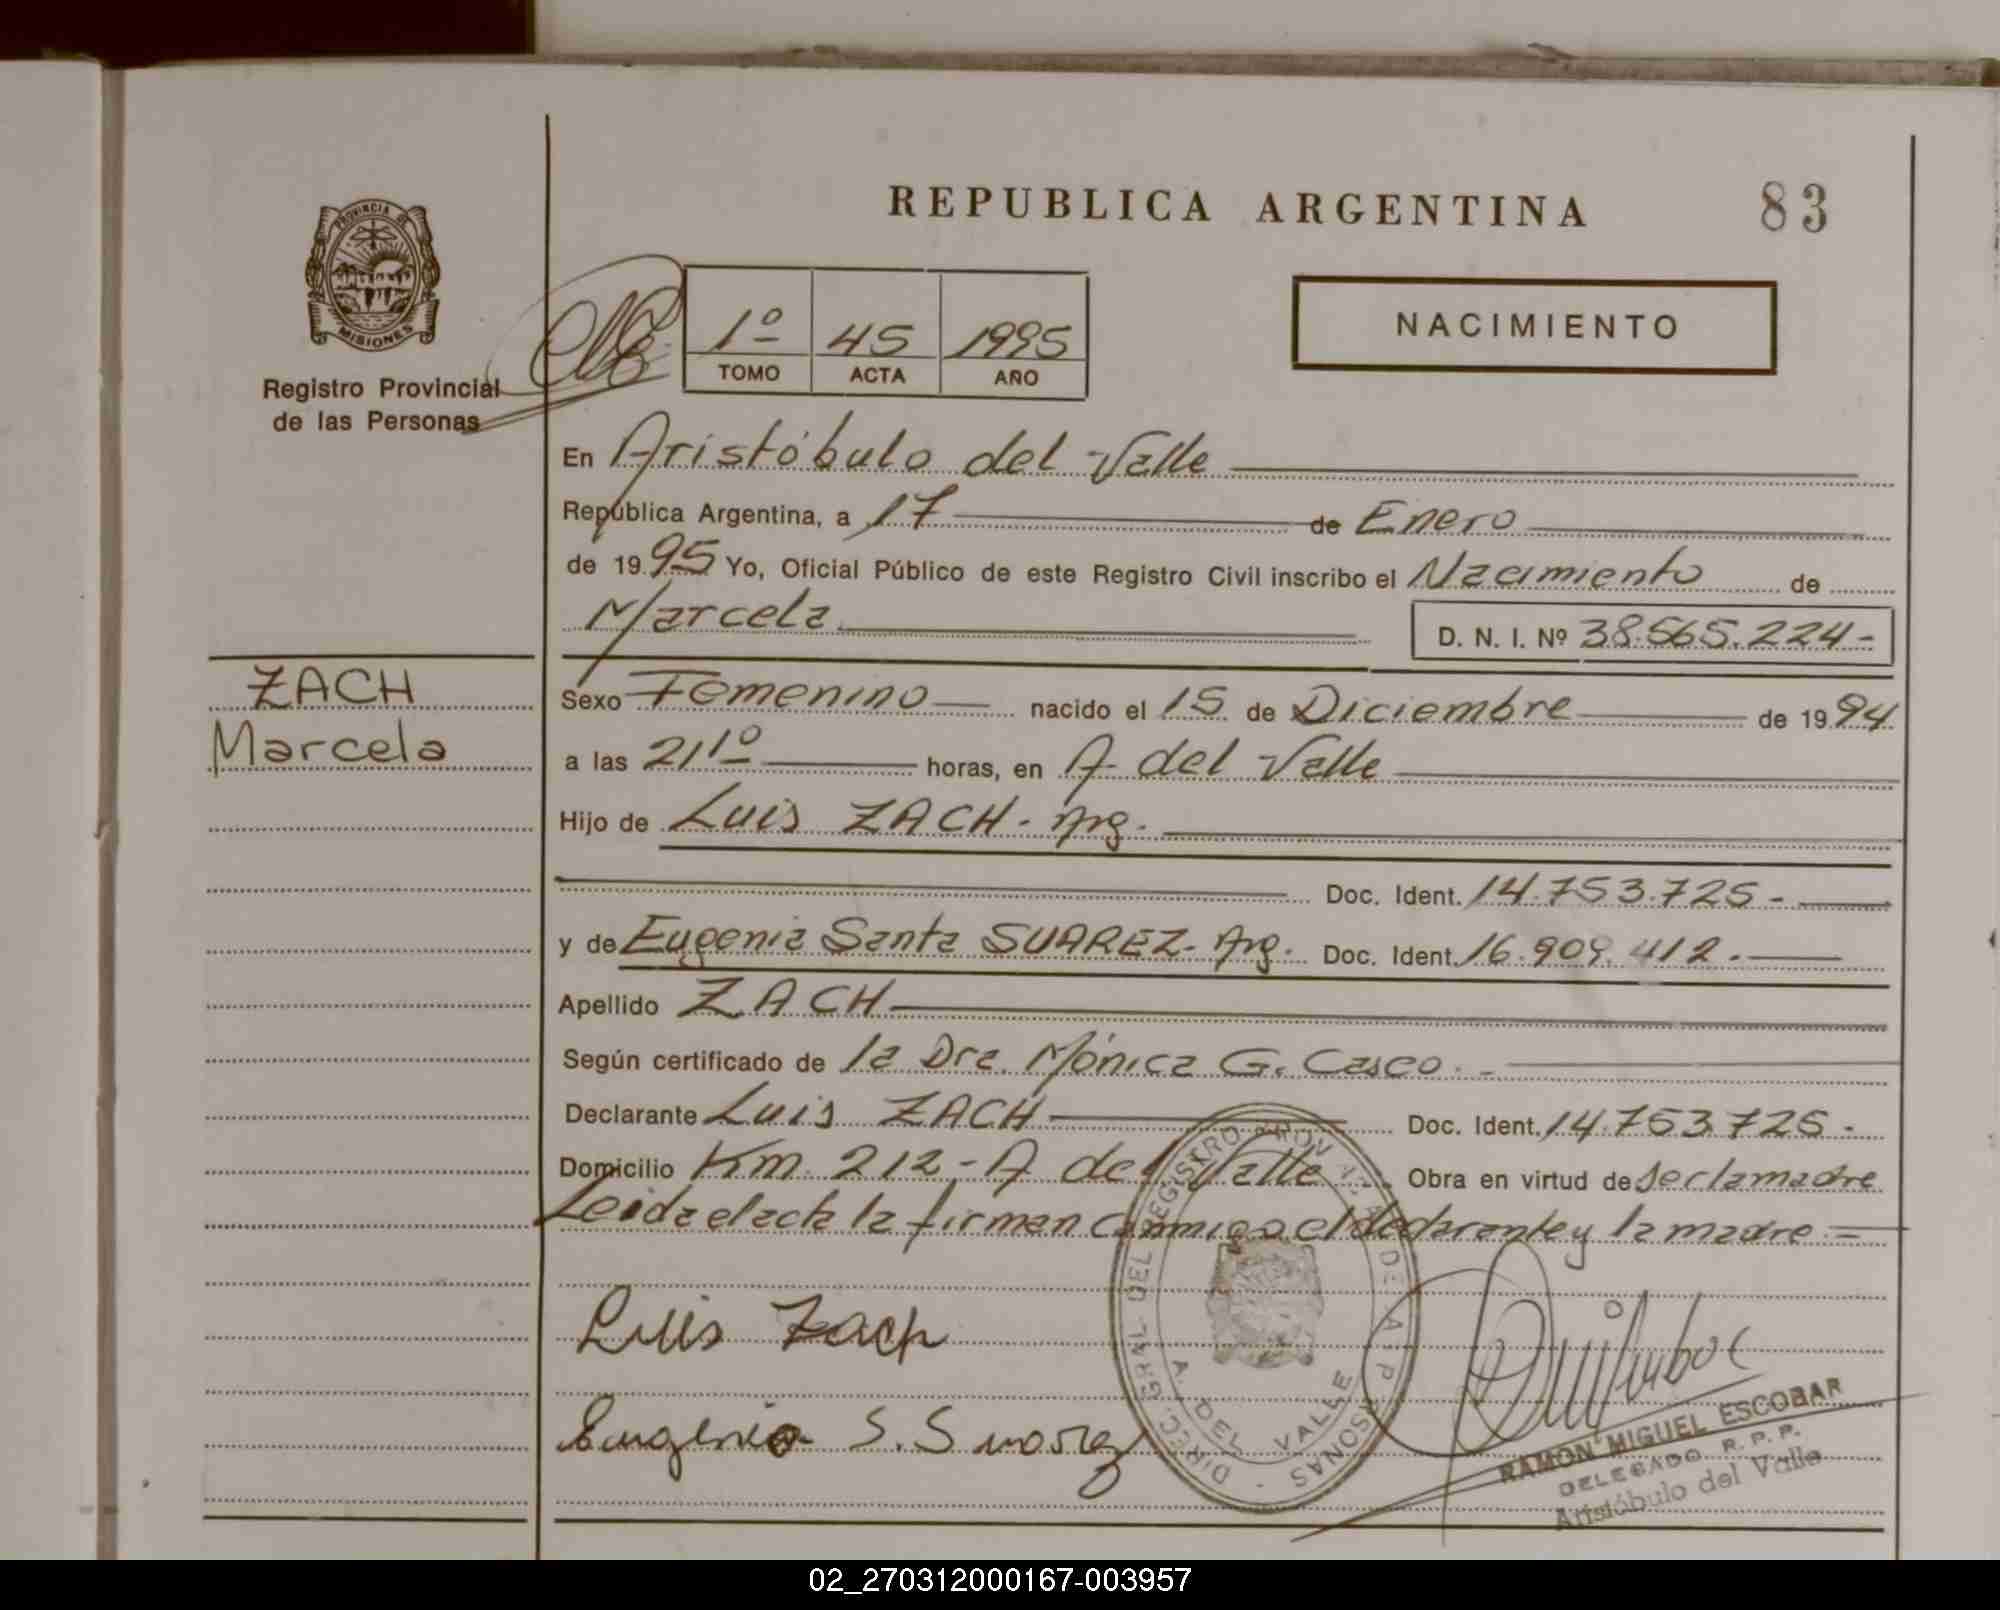 REPUBLICA ARGENTINA
83
PROVINCIA DE
MISIONES
Registro Provincial
de las Personas
1º 45 1995
TOMO ACTA AÑO
NACIMIENTO
En Aristóbulo del Valle
República Argentina, a 17 de Enero
de 1995 Yo, Oficial Público de este Registro Civil inscribo el Nacimiento de
Marcela
D. N. I. Nº 38.565.224-
ZACH
Marcela
Sexo Femenino nacido el 15 de Diciembre de 1994
a las 21 1º horas, en A. del Valle
Hijo de Luis ZACH - Arg.
Doc. Ident. 14.753.725-
y de Eugenia Santa SUAREZ- Arg. Doc. Ident. 16.909.412.-
Apellido ZACH
Según certificado de la Dra. Mónica G. Casco.-
Declarante Luis ZACH Doc. Ident. 14.753.725-
Domicilio Km. 212-A del Valle Obra en virtud de ser la madre
Leida el acta la firman conmigo el declarante y la madre =
Luis Zach
Eugenia S. Suarez
DIRECC. GRAL. DEL REGISTRO PROV. DE LAS PERSONAS -
A. DEL VALLE
RAMON MIGUEL ESCOBAR
DELEGADO R. P. P.
Aristóbulo del Valle
02_270312000167-003957